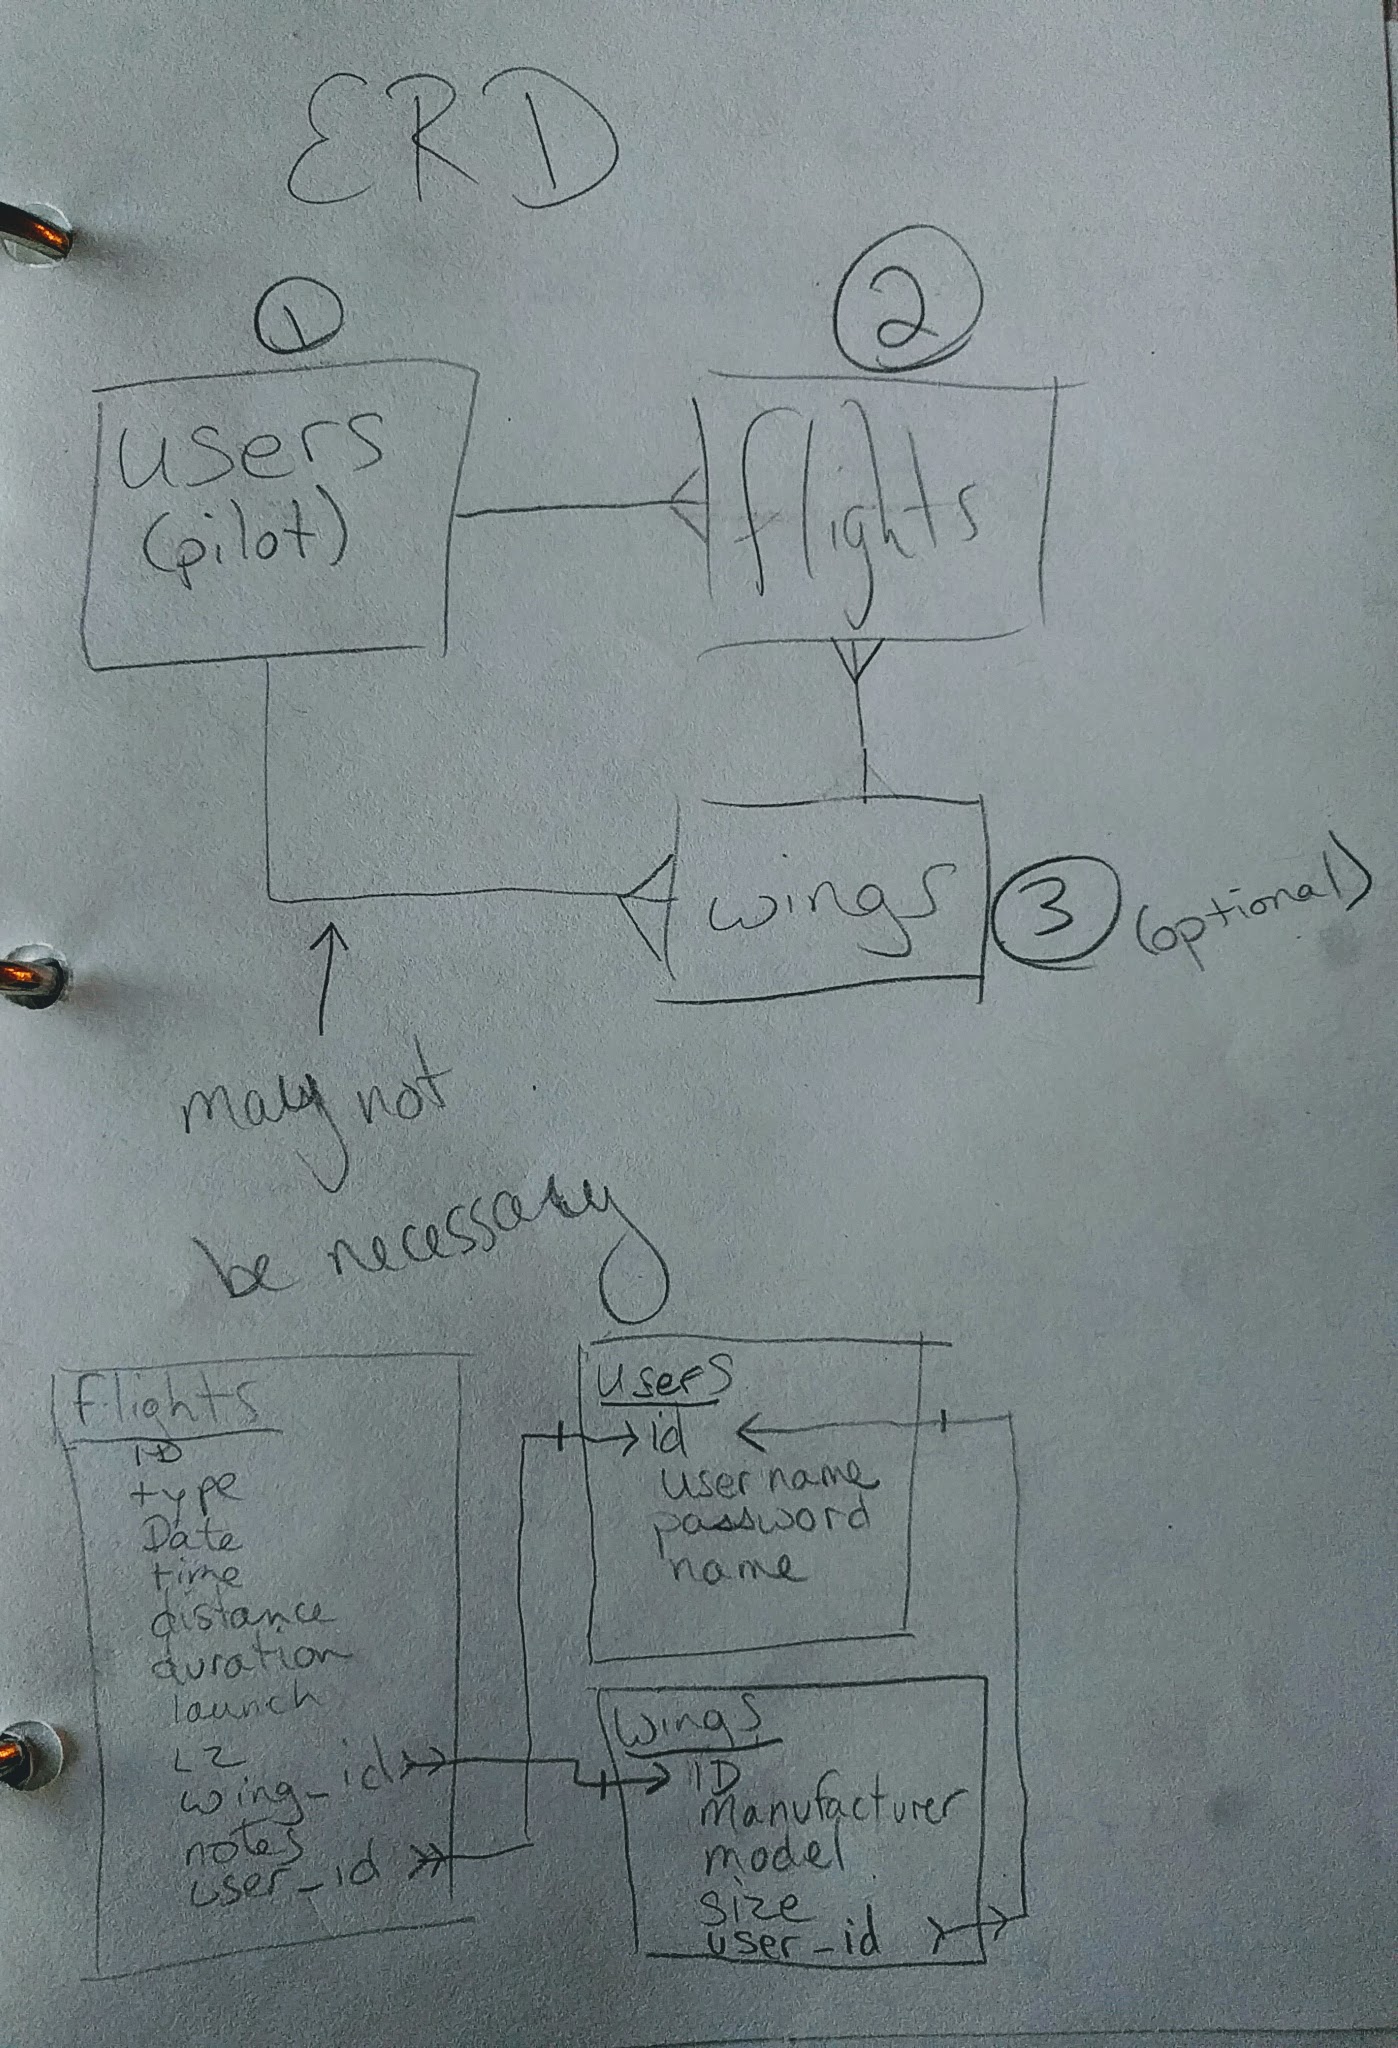 ERD
1
2
users
(pilot)
flights
wings
3
(optional)
may not
be necessary
flights
ID
type
Date
time
distance
duration
launch
LZ
wing_id
notes
user_id
users
id
username
password
name
wings
ID
manufacturer
model
size
user_id